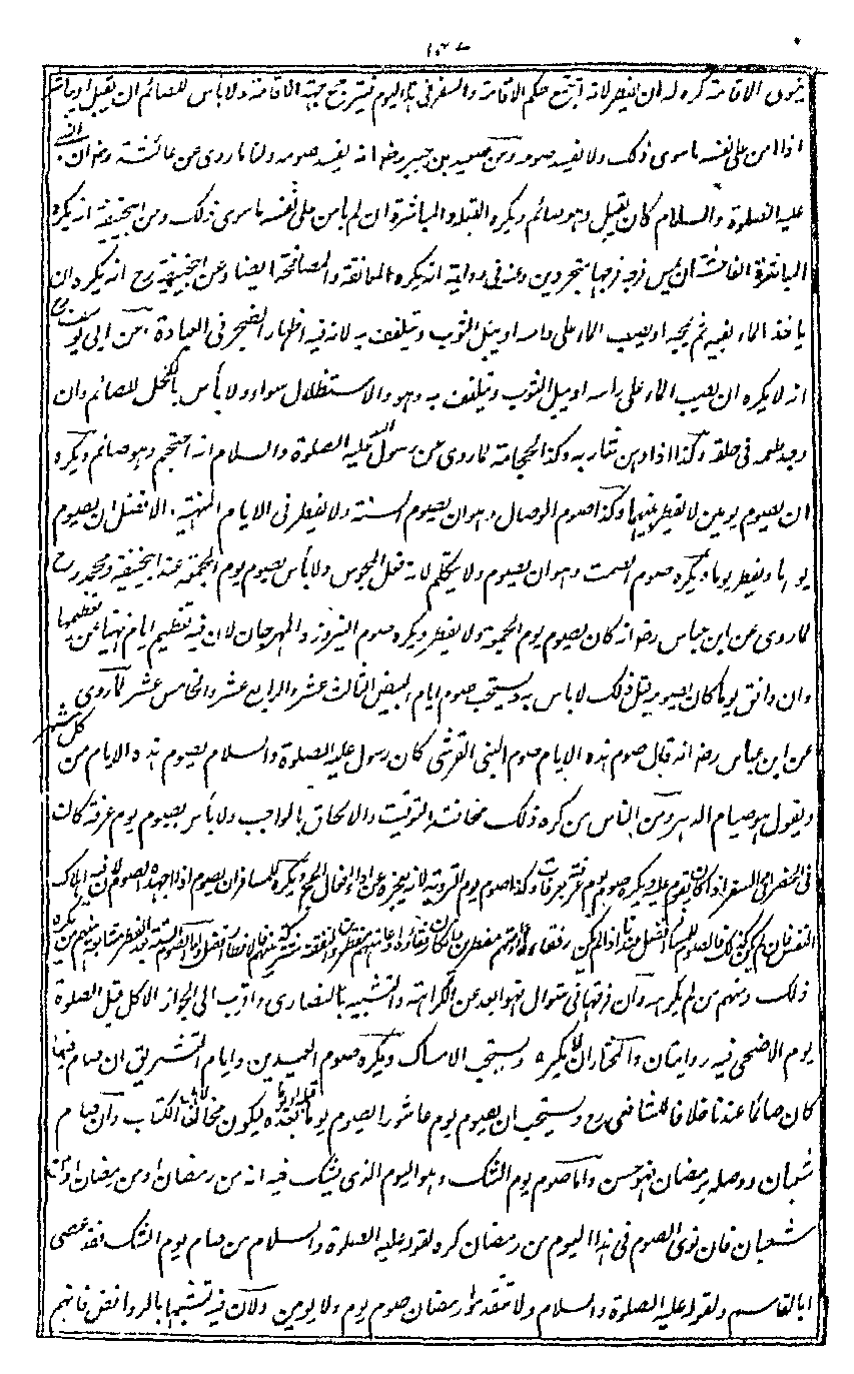 ينوى الاقامة كره له ان يفطر لانه اجتمع حكم الاقامة والسفر فى هذا اليوم فيترجح جهة الاقامة ولا بأس للصائم ان يقبل او يباشر
اذا امن على نفسه ما سوى ذلك ولا يفسد صومه وعن سعيد بن جبير رض انه يفسد صومه ولنا ما روى عن عائشة رض ان النبى
عليه الصلوة والسلام كان يقبل وهو صائم ويكره القبلة والمباشرة ان لم يأمن على نفسه ما سوى ذلك وعن ابيحنيفة انه يكره
المباشرة الفاحشة ان يمس فرجه فرجها متجردين وعنه فى رواية انه يكره المعانقة والمصافحة ايضا وعن ابيحنيفة رح انه يكره ان
ياخذ الماء بفيه ثم يمجه او يصب الماء على راسه او يبل الثوب ويتلفف به لانه فيه اظهار الضجر فى العبادة وعن ابى يوسف رح
انه لا يكره ان يصب الماء على راسه او يبل الثوب ويتلفف به وهو والاستظلال سواء ولا بأس بالكحل للصائم وان
وجد طعمه فى حلقه وكذا اذا دهن شاربه وكذا الحجامة لما روى عن رسول الله عليه الصلوة والسلام انه احتجم وهو صائم ويكره
ان يصوم يومين لا يفطر بينهما وكذا صوم الوصال وهو ان يصوم السنة ولا يفطر فى الايام المنهية. الافضل ان يصوم
يوما ويفطر يوما ويكره صوم الصمت وهو ان يصوم ولا يتكلم لانه فعل المجوس ولا بأس بصوم يوم الجمعة عند ابيحنيفة ومحمد رح
لما روى عن ابن عباس رض انه كان يصوم يوم الجمعة ولا يفطر ويكره صوم النيروز والمهرجان لان فيه تعظيم ايام نهينا عن تعظيمها
وان وافق يوما كان يصومه قبل ذلك لا بأس به ويستحب صوم ايام البيض الثالث عشر والرابع عشر والخامس عشر لما روى
عن ابن عباس رض انه قال صوم هذه الايام صوم النبى القرشى كان رسول عليه الصلوة والسلام يصوم هذه الايام من كل شهر
ويقول هو صيام الدهر ومن الناس من كره ذلك مخافة التوقيت والالحاق بالواجب ولا بأس بصوم يوم عرفة كانت
فى الحضر او فى السفر اذا كان يقوى عليه ويكره صوم يوم عرفة بعرفات وكذا صوم يوم التروية لانه يعجزه عن اداء افعال الحج ويكره للمسافر ان يصوم اذا اجهده الصوم لان فيه اهلاك
النفس فان لم يكن كذلك فالصوم للمسافر افضل عندنا اذا لم يكن رفقاءه او عامتهم مفطرين فان كان رفقاءه او عامتهم مفطرين والنفقة مشتركة بينهم فالافطار افضل واما صوم الستة بعد الفطر متتابعة منهم من يكره
ذلك ومنهم من لم يكرهه وان فرقها فى شوال فهو ابعد عن الكراهة والتشبيه بالنصارى واقرب الى الجواز الاكل قبل الصلوة
يوم الاضحى فيه روايتان والمختار انه لا يكره ويستحب الامساك ويكره صوم العيدين وايام التشريق ان صام فيها
كان صائما عندنا خلافا للشافعى رح ويستحب ان يصوم يوم عاشورا لصوم يوما قبله او يوما بعده ليكون مخالفا لاهل الكتاب وان صام
شعبان ووصله برمضان فهو حسن واما صوم يوم الشك وهو اليوم الذى يشك فيه انه من رمضان او من رمضان او من
شعبان فان نوى الصوم فى هذا اليوم من رمضان كره لقوله عليه الصلوة والسلام من صام يوم الشك فقد عصى
ابا القاسم ولقوله عليه الصلوة والسلام ولا تتقدموا رمضان صوم يوم ولا يومين ولان فيه تشبها بالروافض فانهم